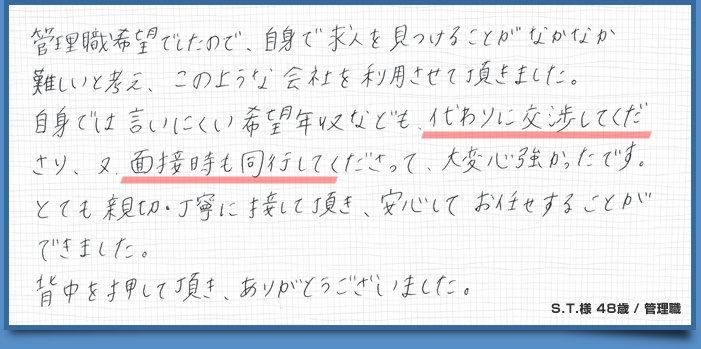 管理職希望でしたので、自身で求人を見つけることがなかなか
難しいと考え、このような会社を利用させて頂きました。
自身では言いにくい希望年収なども、代わりに交渉してくだ
さり、又、面接時も同行してくださって、大変心強かったです。
とても親切・丁寧に接して頂き、安心してお任せすることが
できました。
背中を押して頂き、ありがとうございました。
S.T.様 48歳 / 管理職